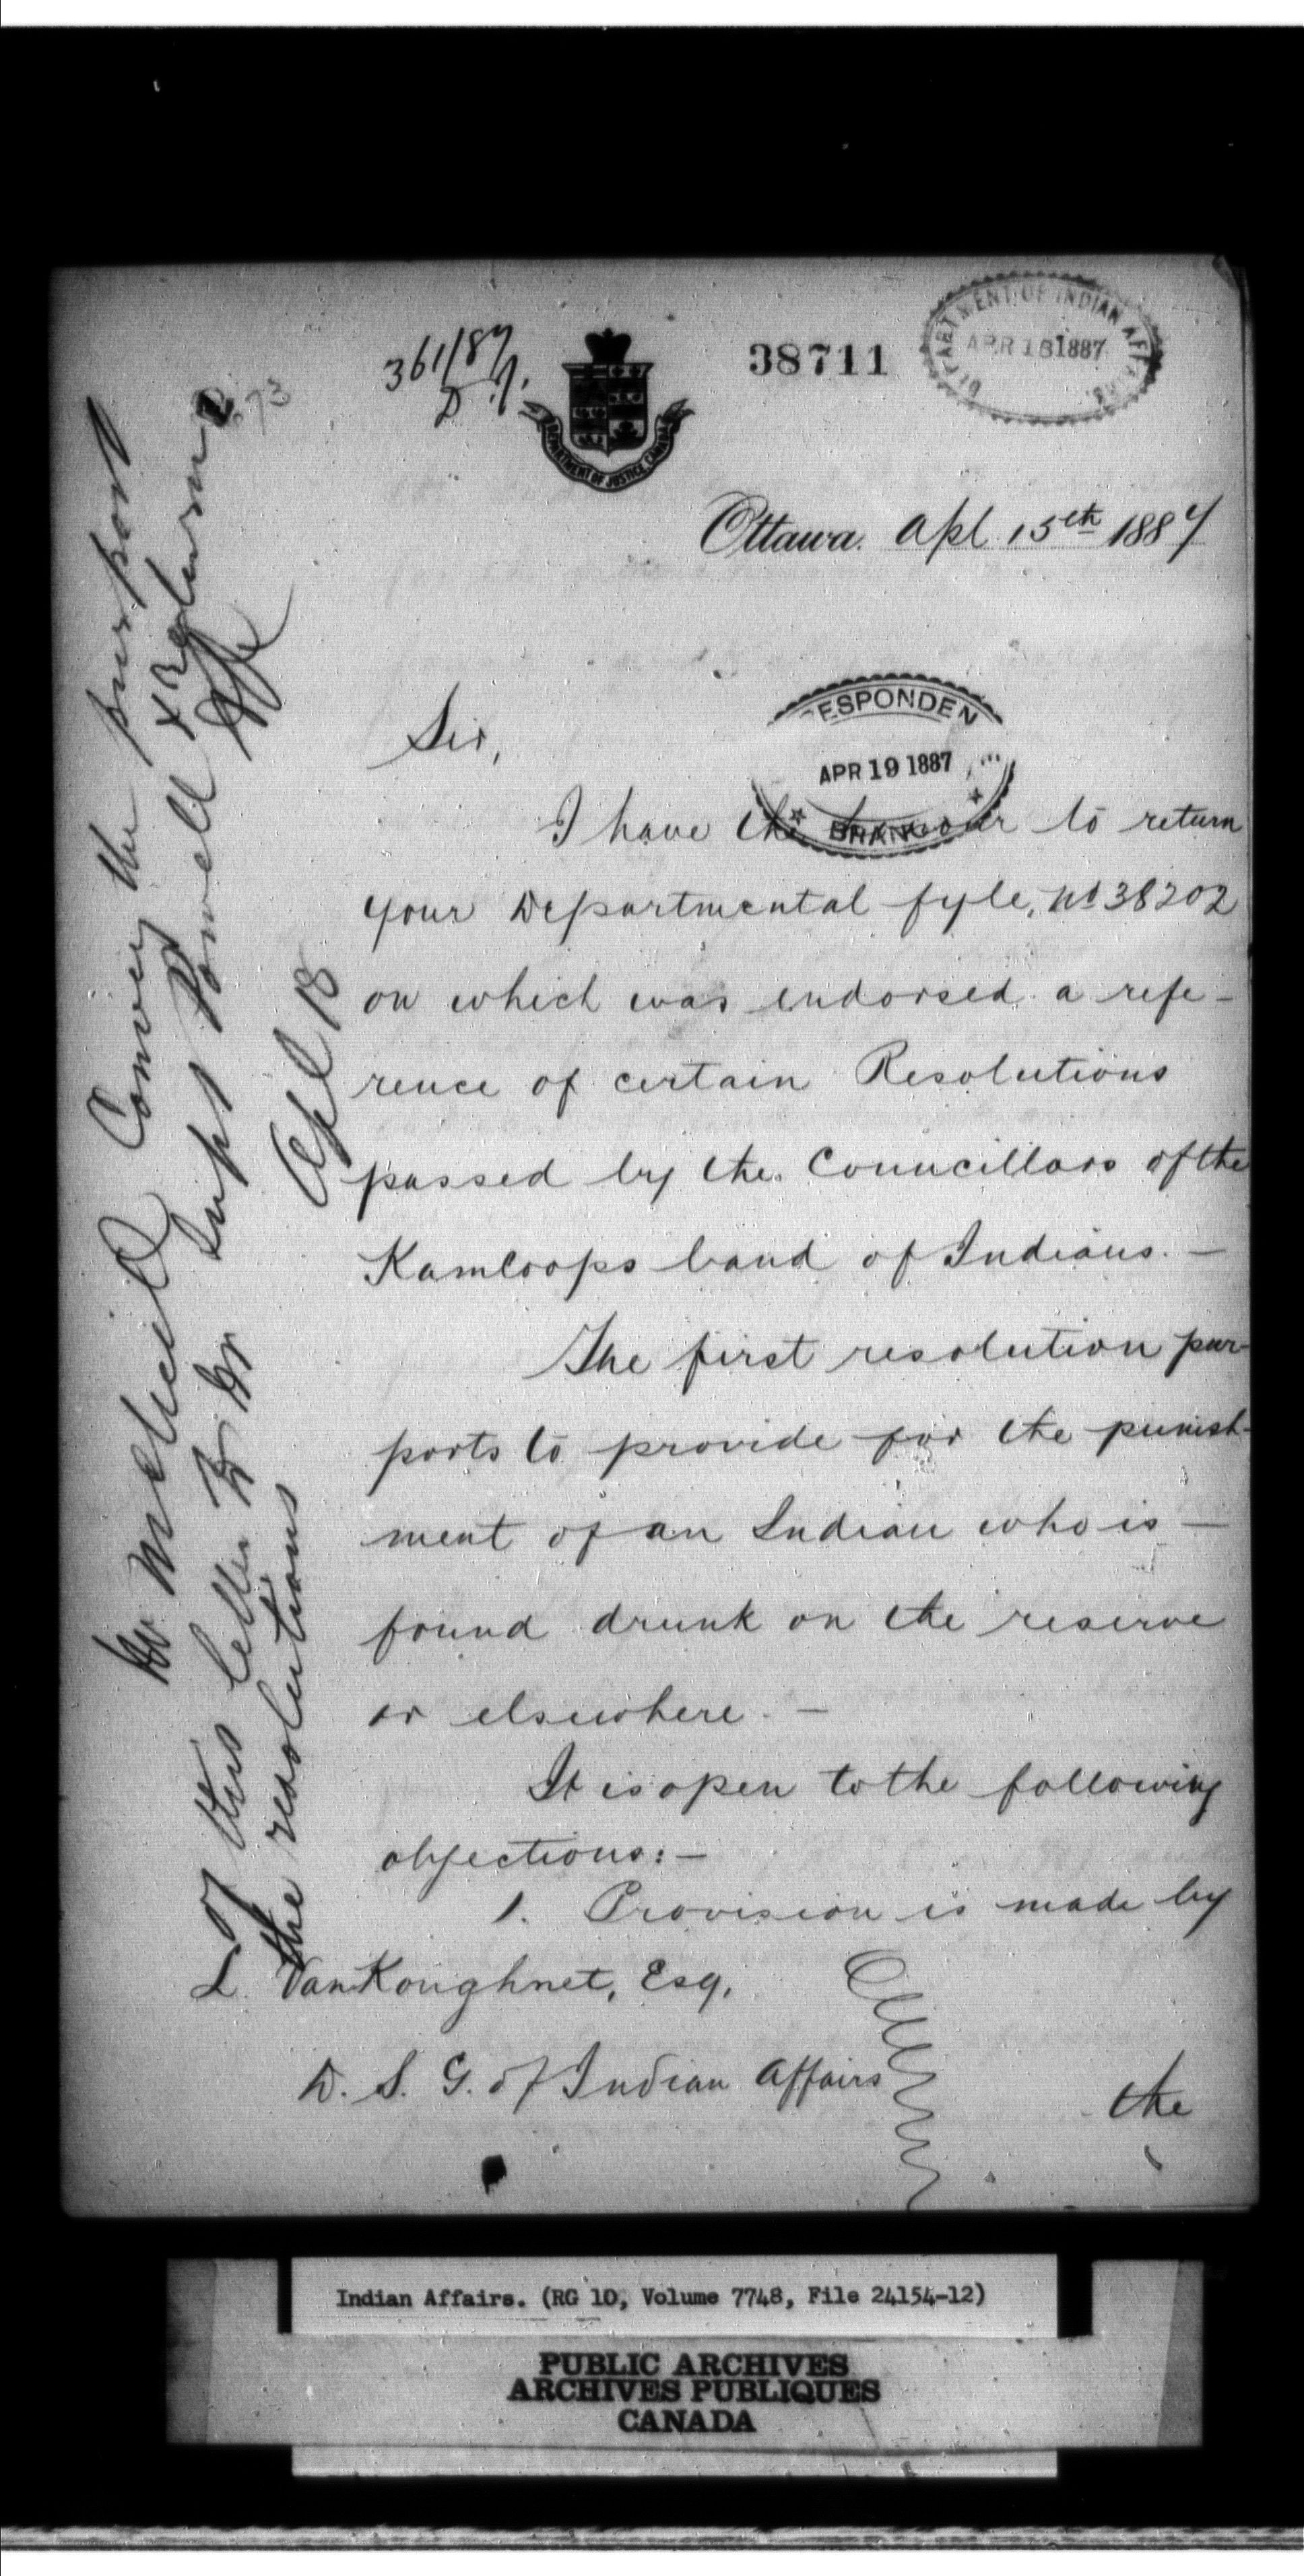 361/87
D.J.
DEPARTMENT OF JUSTICE, CANADA
38711
DEPARTMENT OF INDIAN AFFAIRS
APR 18 1887
Ottawa. Apl. 15th 1887
Sir,
ESPONDEN
APR 19 1887
BRANC
I have the honour to return
your Departmental fyle, No 38202
on which was endorsed a refe-
rence of certain Resolutions
passed by the Councillors of the
Kamloops band of Indians. —
The first resolution pur-
ports to provide for the punish-
ment of an Indian who is —
found drunk on the reserve
or elsewhere. —
It is open to the following
objections: —
1. Provision is made by
L. VanKoughnet, Esq.
D. S. G. of Indian Affairs
the
Mr McNeill Convey the purport
of this letter to Mr Supt Powell & Return
the resolutions
Apl 18
Indian Affairs. (RG 10, Volume 7748, File 24154-12)
PUBLIC ARCHIVES
ARCHIVES PUBLIQUES
CANADA